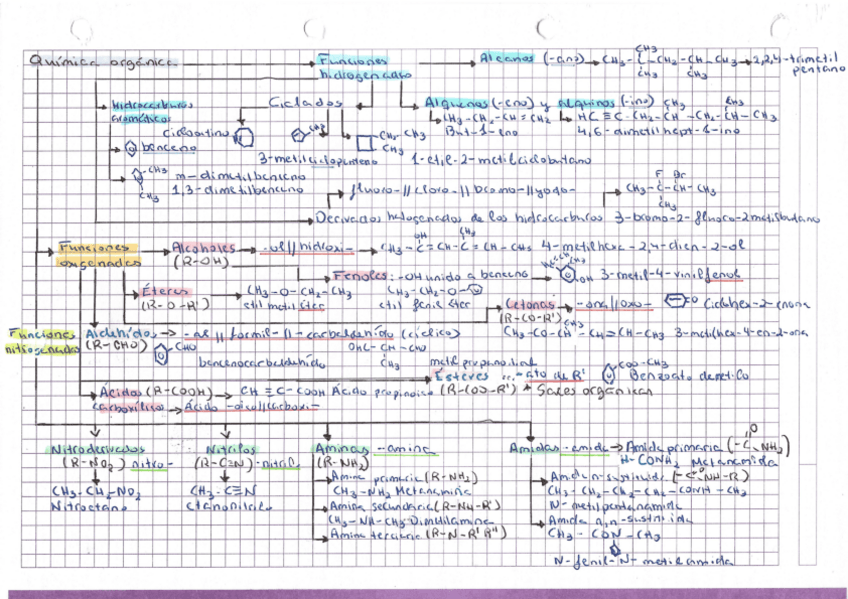 Química orgánica
Funciones hidrogenadas
Alcanos (-ano) → CH₃-C-CH₂-CH-CH₃ → 2,2,4-trimetil pentano
CH₃
CH₃ CH₃
Hidrocarburos aromáticos
Ciclados
Alquenos (-eno) y alquinos (-ino)
CH₃ CH₃
CH₃-CH₂-CH=CH₂
HC≡C-CH₂-CH-CH₂-CH-CH₃
But-1-eno
4,6-dimetilhept-1-ino
benceno
CH₃
CH₂-CH₃
CH₃
3-metilciclopenteno
1-etil-2-metilciclobutano
CH₃
CH₃
m-dimetilbenceno
1,3-dimetilbenceno
fluoro-//cloro-//bromo-//yodo-
F Br
CH₃-C-CH-CH₃
CH₃
Derivados halogenados de los hidrocarburos
3-bromo-2-fluoro-2metilbutano
Funciones oxigenadas
Alcoholes (R-OH)
-ol//hidroxi-
OH CH₃
CH₃-C=CH-C=CH-CH₃
4-metilhexa-2,4-dien-2-ol
Fenoles: -OH unido a benceno
OH
3-metil-4-vinilfenol
Éteres (R-O-R')
CH₃-O-CH₂-CH₃
etil metil éter
CH₃-CH₂-O-
etil fenil éter
Cetonas (R-CO-R')
-ona//oxo-
=O
Ciclohex-2-enona
CH₃
CH₃-CO-CH-CH=CH-CH₃ 3-metilhex-4-en-2-ona
Funciones nitrogenadas
Aldehídos (R-CHO)
-al//formil-//-carbaldehído (cíclico)
CHO
bencenocarbaldehído
OHC-CH-CHO
CH₃
metilpropanodial
Ésteres ...-ato de R'
(R-COO-R') * Sales orgánicas
COO-CH₃
Ácidos (R-COOH)
carboxílicos
CH≡C-COOH Ácido propinoico
Ácido -oico//carboxi-
Nitroderivados (R-NO₂) nitro-
CH₃-CH₂-NO₂
Nitroetano
Nitrilos (R-C≡N) -nitrilo
CH₃-C≡N
Etanonitrilo
Aminas -amina (R-NH₂)
Amina primaria (R-NH₂)
CH₃-NH₂ Metanamina
Amina secundaria (R-NH-R')
CH₃-NH-CH₃ Dimetilamina
Amina terciaria (R-N-R'R'')
Amidas -amida → Amida primaria (-C NH₂)
O
H-CONH₂ Metanamida
Amida n-sustituida (-C NH-R)
O
CH₃-CH₂-CH₂-CH₂-CONH-CH₃
N-metilpentanamida
Amida n,n-sustituida
CH₃-CON-CH₃
N-fenil-N-metilamida